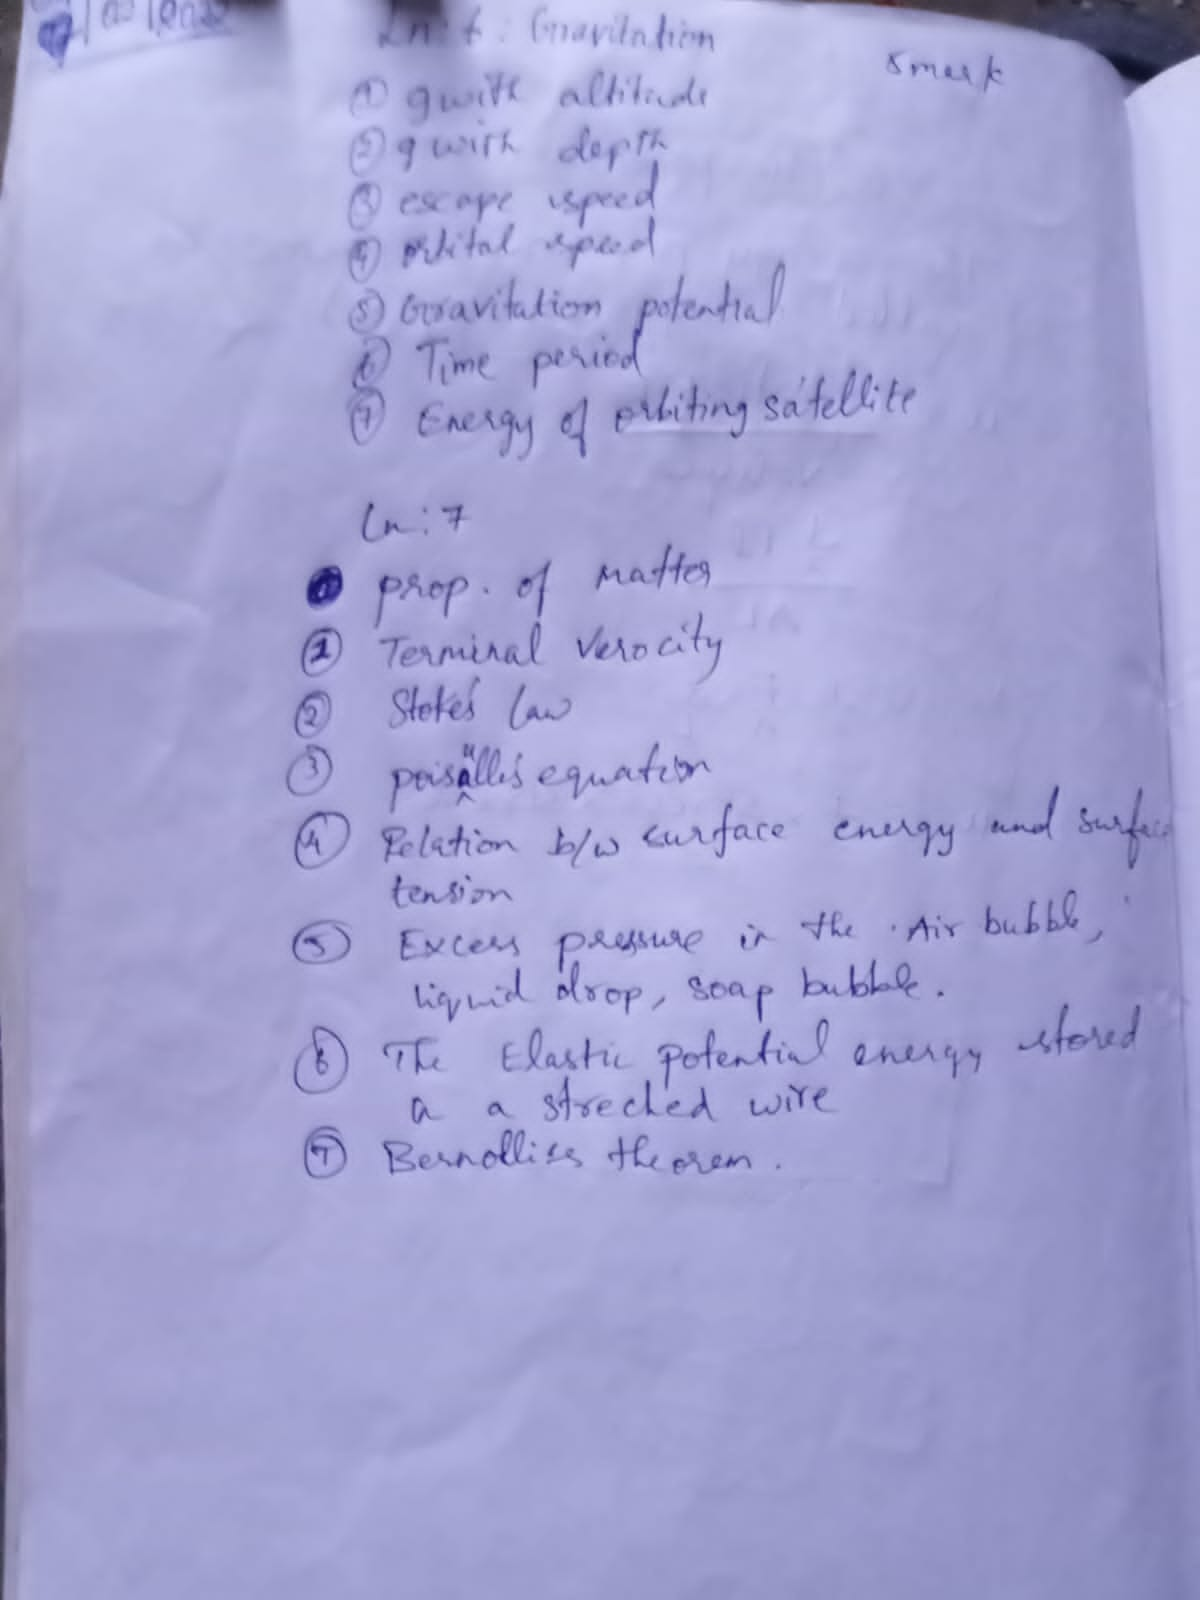 Ln: 6 : Gravitation
5 mark
① g with altitude
② g with depth
③ escape speed
④ orbital speed
⑤ Gravitation potential
⑥ Time period
⑦ Energy of orbiting satellite
Ln: 7
prop. of matter
① Terminal verocity
② Stoke's law
③ poisulle's equation
④ Relation b/w surface energy and surface
tension
⑤ Excess pressure in the Air bubble,
liquid drop, soap bubble.
⑥ The Elastic potential energy stored
a a streched wire
⑦ Bernolliss theorem.